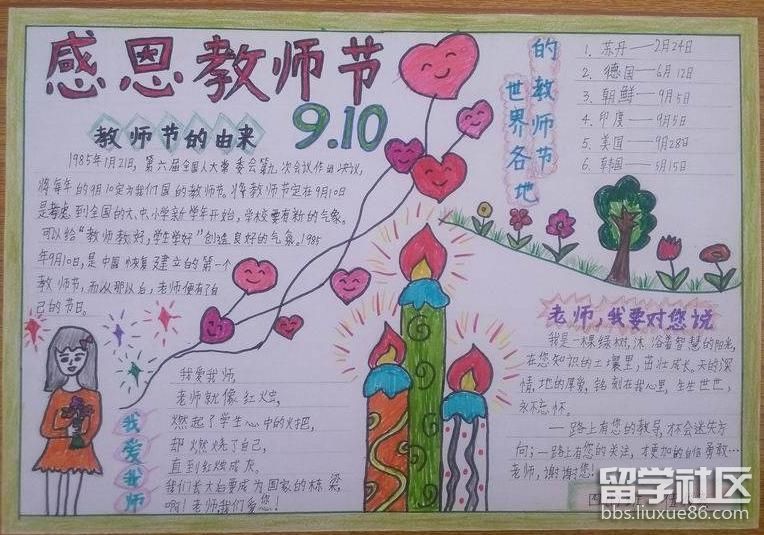 感恩教师节
9.10
教师节的由来
1985年1月21日,第六届全国人大常委会第九次会议作出决议,
将每年的9月10定为我们国的教师节。将教师节定在9月10日
是考虑到全国的大、中、小学新学年开始,学校要有新的气象。
可以给“教师教好,学生学好”创造良好的气象。1985
年9月10日,是中国恢复建立的第一个
教师节,而从那以后,老师便有了自
己的节日。
世界各地
的教师节
1、苏丹——2月24日
2、德国——6月12日
3、朝鲜——9月5日
4、印度——9月5日
5、美国——9月28日
6、韩国——5月15日
我爱我师
我爱我师,
老师就像红烛,
燃起了学生心中的火把,
却燃烧了自己,
直到红烛成灰。
我们长大后要成为国家的栋梁,
啊!老师我们爱您!
老师,我要对您说
我是一棵绿树,沐浴着智慧的阳光,
在您知识的土壤里,茁壮成长。天的深
情,地的厚爱,铭刻在我心里,生生世世,
永不忘怀。
一路上有您的教导,才不会迷失方
向;一路上有您的关注,才更加的自信勇敢…
老师,谢谢您!
留学社区
bbs.liuxue86.com